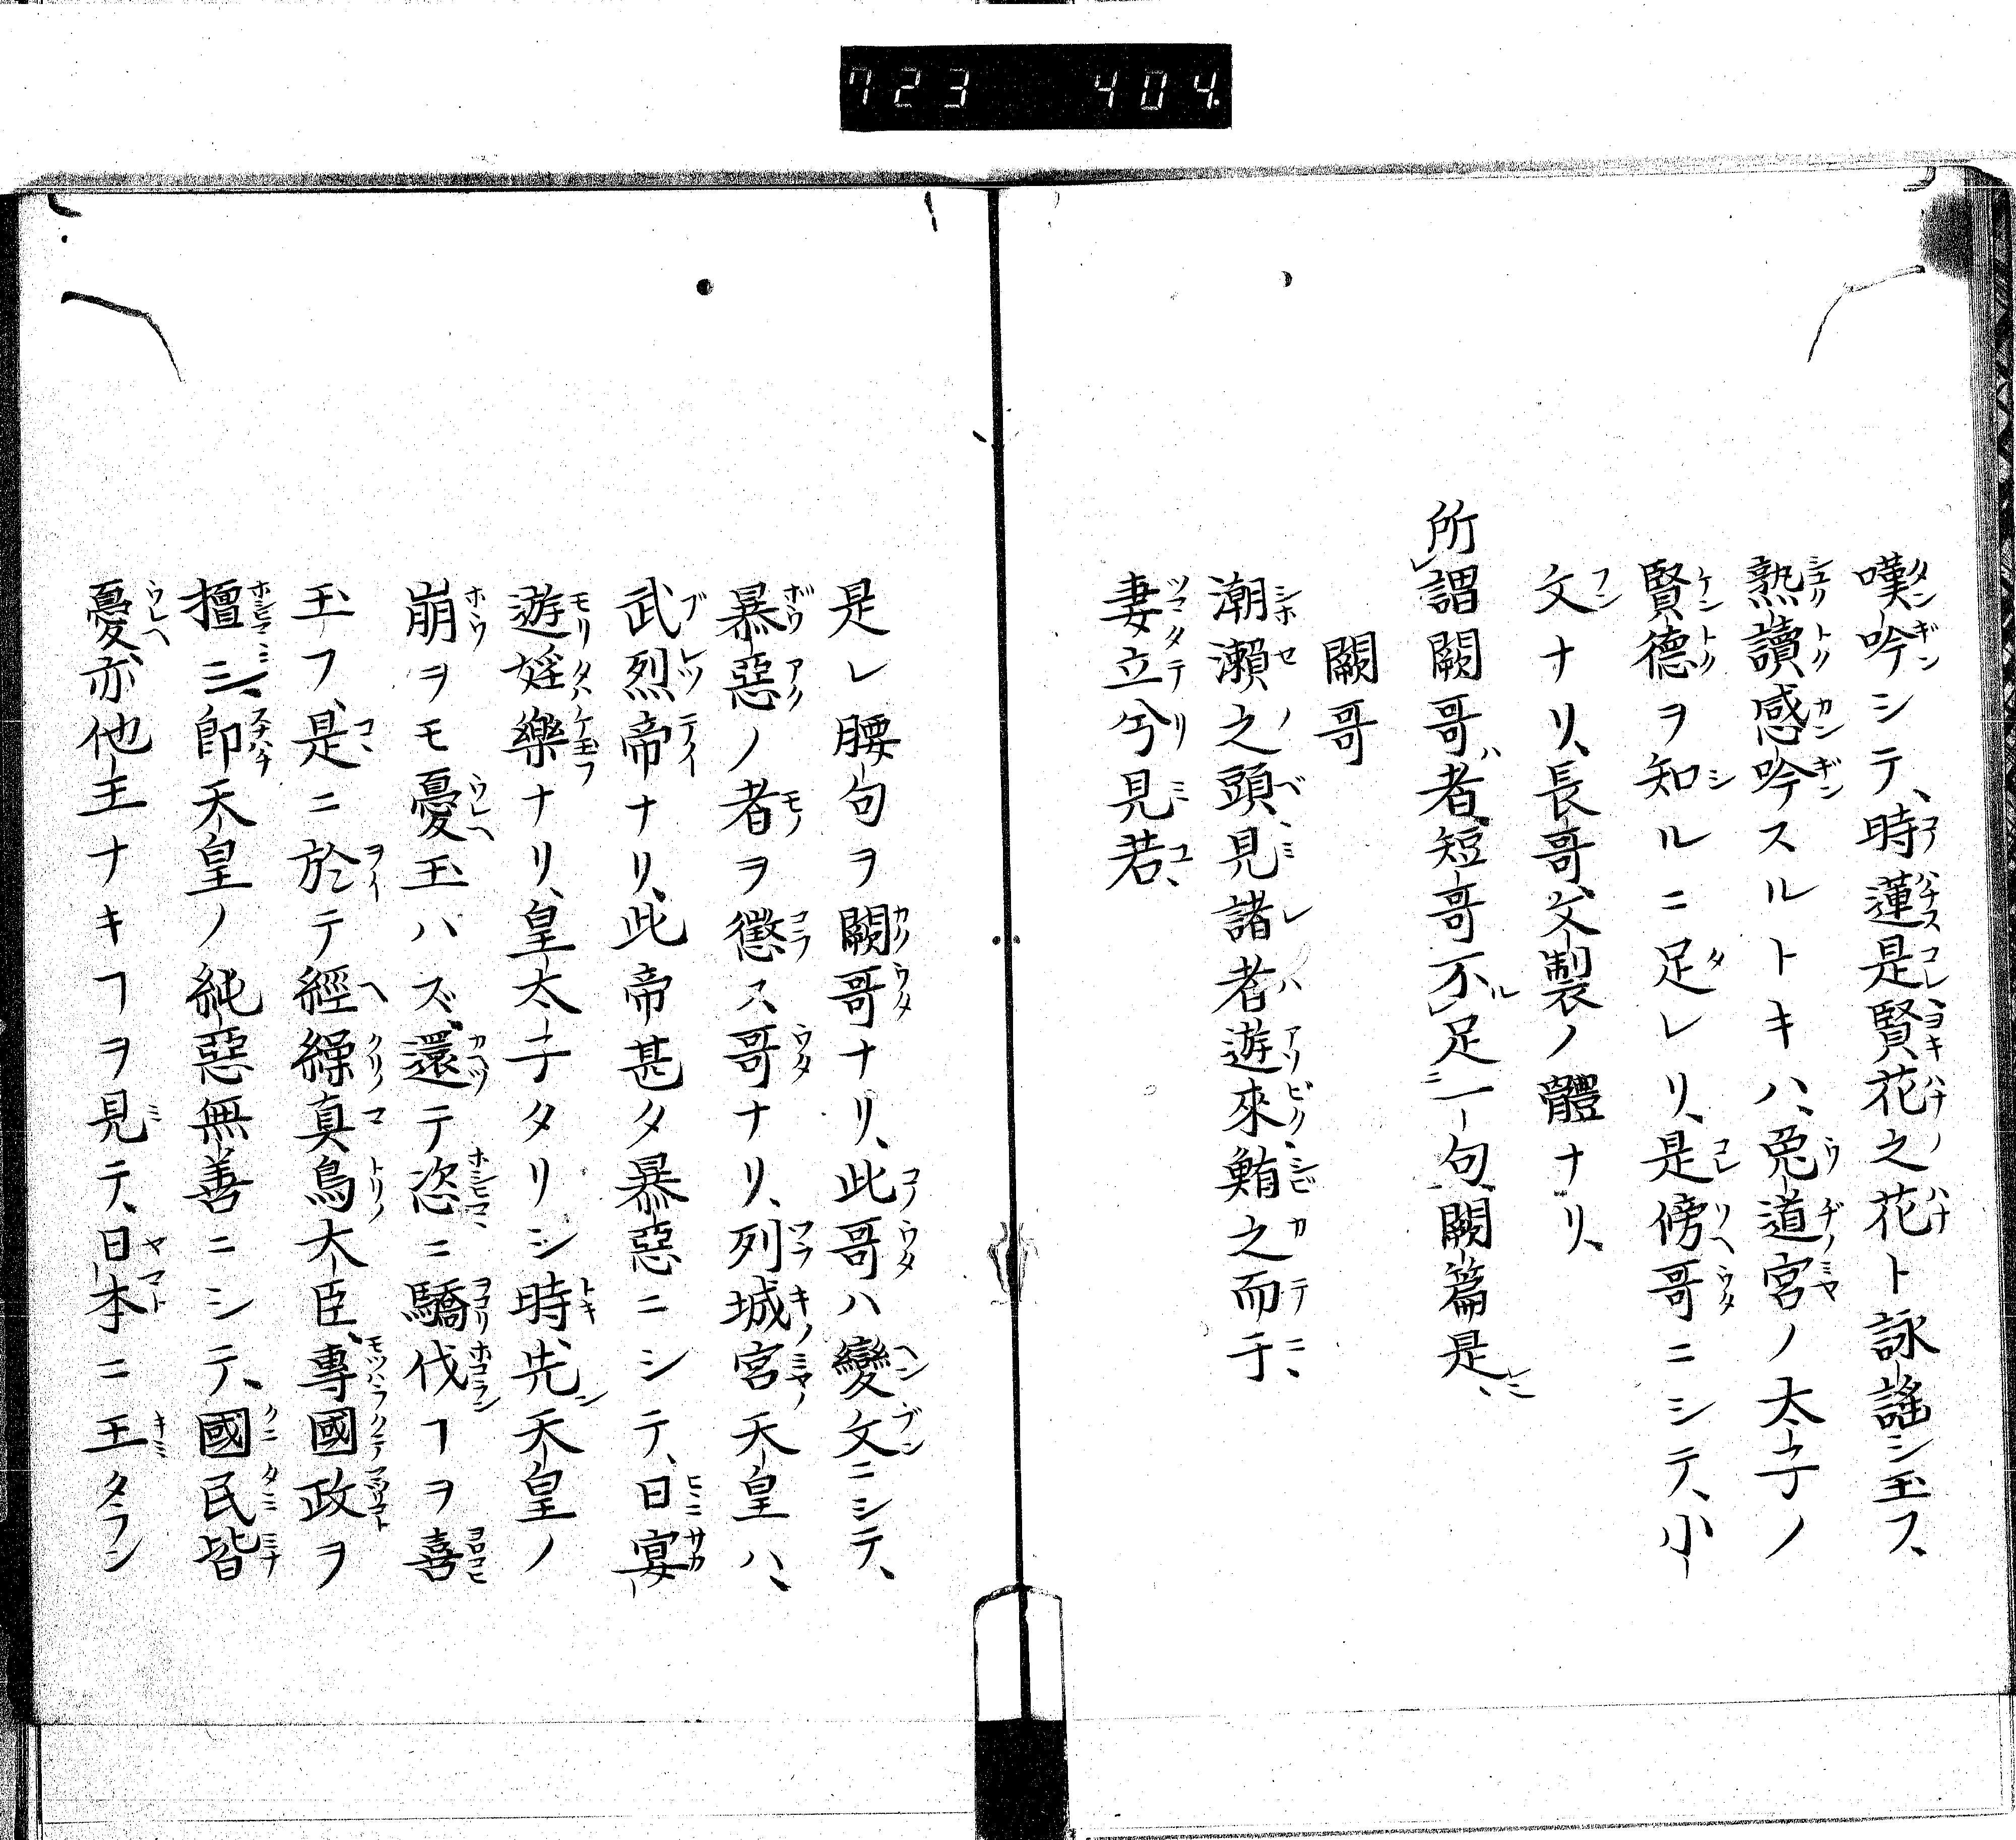 723 404.
嘆吟シテ、時蓮是賢花之花ト詠謠シ玉フ、
熟讀感吟スルトキハ、兎道宮ノ太子ノ
賢德ヲ知ルニ足レリ、是傍哥ニシテ、小
文ナリ、長哥、文製ノ體ナリ、
所謂闕哥者、短哥不足一句、闕篇是、
闕哥
潮瀨之頭見諸者遊來鮪之而于
妻立兮見若、
是レ腰句ヲ闕哥ナリ、此哥ハ變文ニシテ、
暴惡ノ者ヲ懲ス哥ナリ、列城宮天皇ハ、
武烈帝ナリ、此帝甚タ暴惡ニシテ、日宴
遊婬樂ナリ、皇太子タリシ時、先天皇ノ
崩ヲモ憂玉ハズ、還テ恣ニ驕伐ヿヲ喜
玉フ、是ニ於テ經繰真鳥大臣、專國政ヲ
擅ニシ、即天皇ノ純惡無善ニシテ、國民皆
憂、亦他王ナキヿヲ見テ、日本ニ王タラン